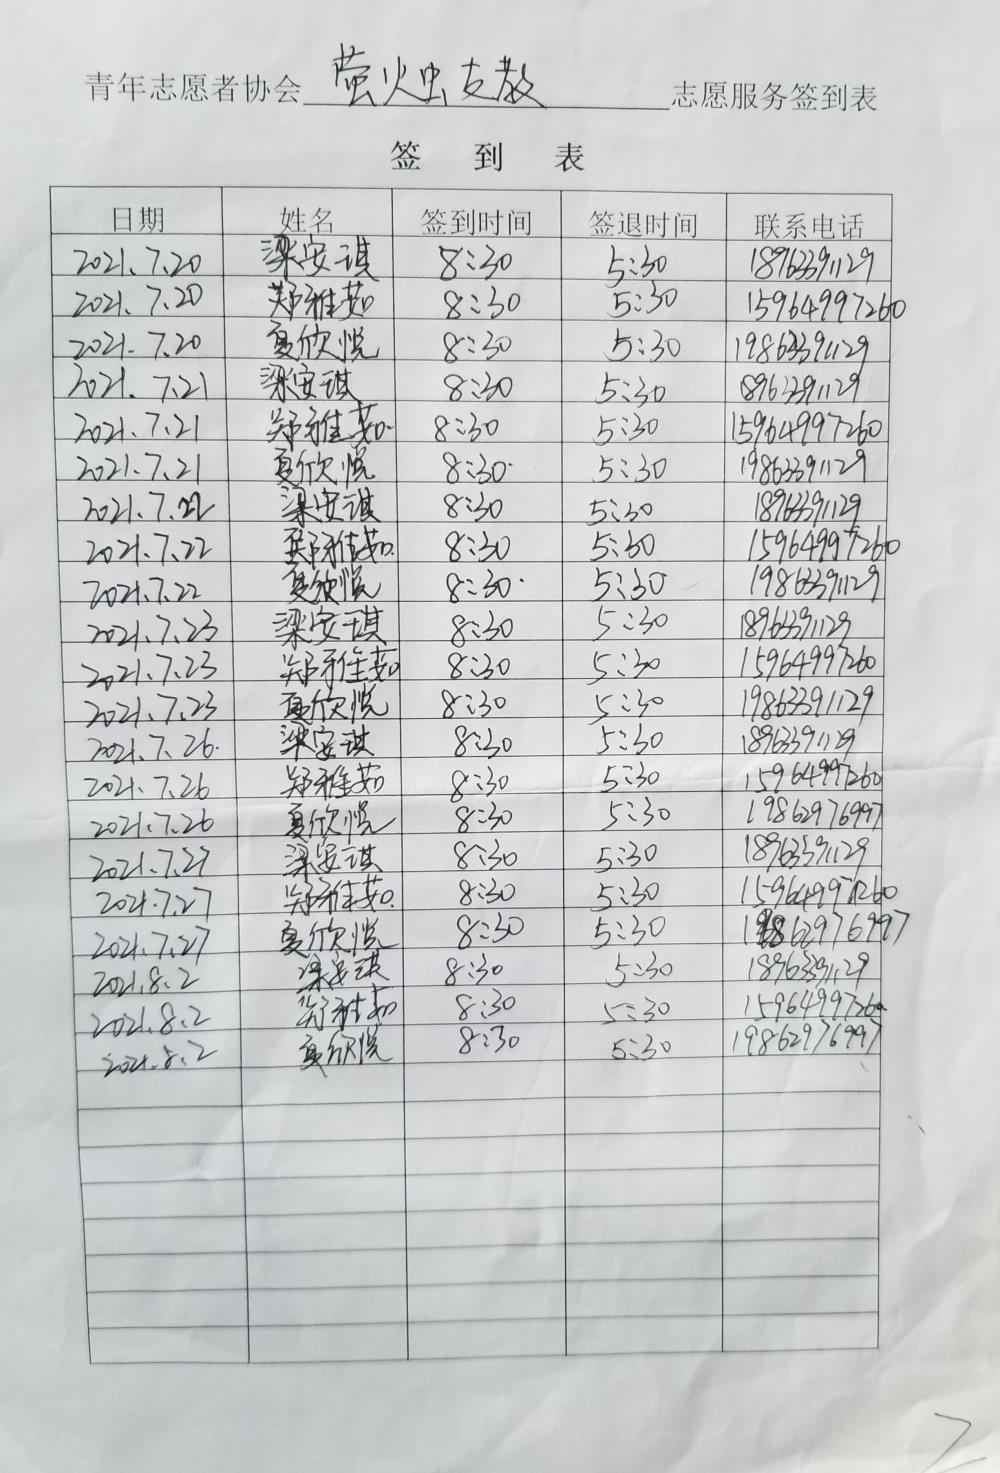 青年志愿者协会 萤火虫支教 志愿服务签到表
签 到 表
日期 姓名 签到时间 签退时间 联系电话
2021.7.20 梁安琪 8:30 5:30 18963391129
2021.7.20 郑雅茹 8:30 5:30 15964997260
2021.7.20 夏欣悦 8:30 5:30 19863391129
2021.7.21 梁安琪 8:30 5:30 18963391129
2021.7.21 郑雅茹 8:30 5:30 15964997260
2021.7.21 夏欣悦 8:30 5:30 19863391129
2021.7.22 梁安琪 8:30 5:30 18963391129
2021.7.22 郑雅茹 8:30 5:30 15964997260
2021.7.22 夏欣悦 8:30 5:30 19863391129
2021.7.23 梁安琪 8:30 5:30 18963391129
2021.7.23 郑雅茹 8:30 5:30 15964997260
2021.7.23 夏欣悦 8:30 5:30 19863391129
2021.7.26 梁安琪 8:30 5:30 18963391129
2021.7.26 郑雅茹 8:30 5:30 15964997260
2021.7.26 夏欣悦 8:30 5:30 19862976997
2021.7.27 梁安琪 8:30 5:30 18963391129
2021.7.27 郑雅茹 8:30 5:30 15964997260
2021.7.27 夏欣悦 8:30 5:30 19862976997
2021.8.2 梁安琪 8:30 5:30 18963391129
2021.8.2 郑雅茹 8:30 5:30 15964997260
2021.8.2 夏欣悦 8:30 5:30 19862976997